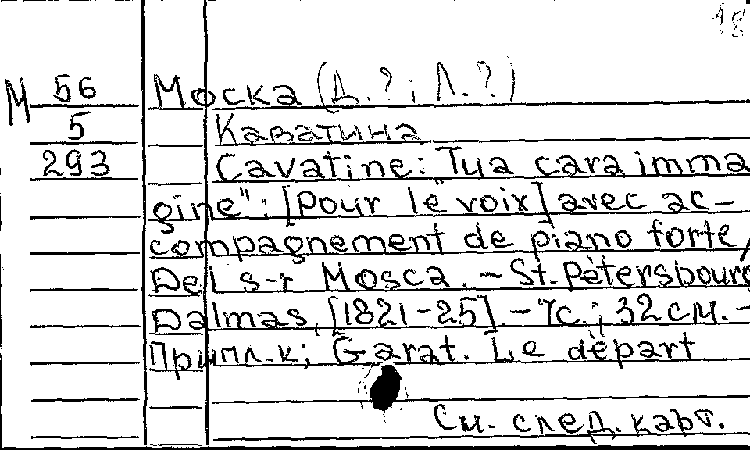 18
М 56 Моска (Д.?; Л.?)
5 Каватина
293 Cavatine: "Tua cara imma
gine": [pour le voix] avec ac-
compagnement de piano forte/
Del s-r Mosca. - St. Pètersbourg
Dalmas, [1821-25]. - 7с.; 32 см. -
Припл. к: Garat. Le dèpart
См. след. карт.